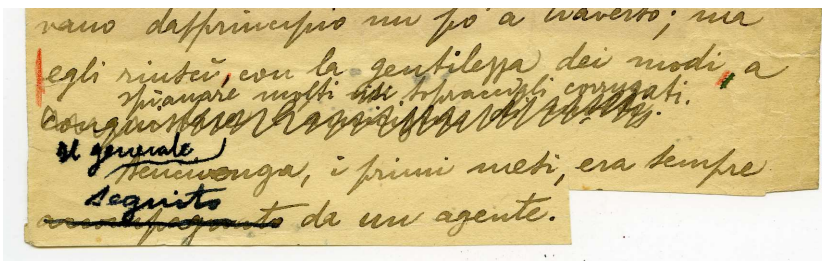 vano dapprincipio un po' a traverso; ma
egli riuscì, con la gentilezza dei modi, a
spianare molti sopraccigli corrugati.
Il generale
, i primi mesi, era sempre
seguito
accompagnato da un agente.